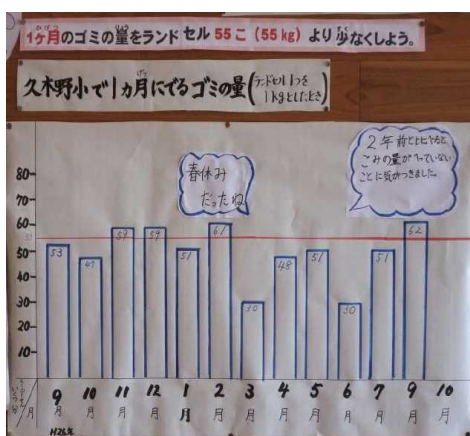 1ヶ月のゴミの量をランドセル 55こ (55kg) より少なくしよう。
久木野小で1ヵ月にでるゴミの量(ランドセル1つを1kgとしたとき)
春休み
だったね
2年前と比べると
ごみの量がへっていない
ことに気がつきました。
80
70
60
50
40
30
20
10
53
47
59
59
51
61
30
48
51
30
51
62
9月 10月 11月 12月 1月 2月 3月 4月 5月 6月 7月 9月 10月
H26年